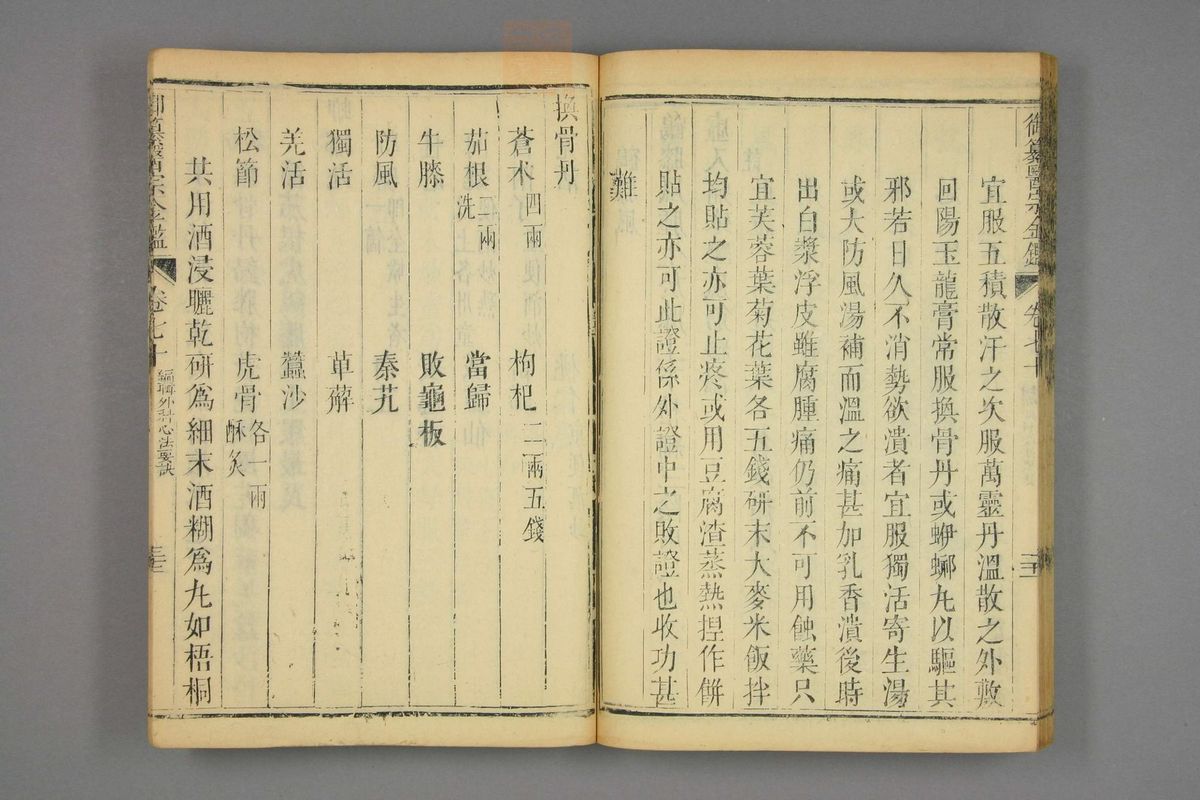 御纂醫宗金鑑 卷七十
宜服五積散汗之次服萬靈丹溫散之外敷
回陽玉龍膏常服換骨丹或蚵蚾丸以驅其
邪若日久不消勢欲潰者宜服獨活寄生湯
或大防風湯補而溫之痛甚加乳香潰後時
出白漿浮皮雖腐腫痛仍前不可用蝕藥只
宜芙蓉葉菊花葉各五錢研末大麥米飯拌
均貼之亦可止疼或用豆腐渣蒸熱捏作餅
貼之亦可此證係外證中之敗證也收功甚
難
換骨丹
蒼朮四兩 枸杞二兩五錢
茄根二兩洗 當歸
牛膝 敗龜板
防風 秦艽
獨活 萆薢
羌活 蠶沙
松節 虎骨酥炙各一兩
共用酒浸曬乾研爲細末酒糊爲丸如梧桐
御纂醫宗金鑑 卷七十 編輯外科心法要訣